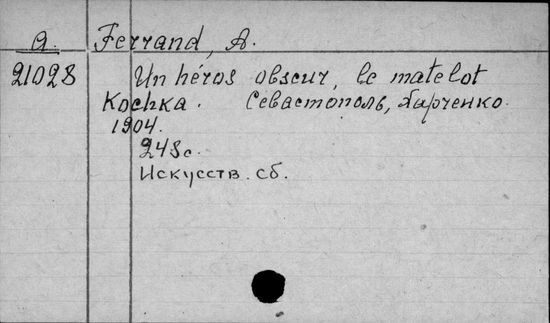 a. Ferrand, A.
21028 Un héros obscur, le matelot
Kochka. Севастополь, Харченко.
1904.
243с.
Искусств. сб.